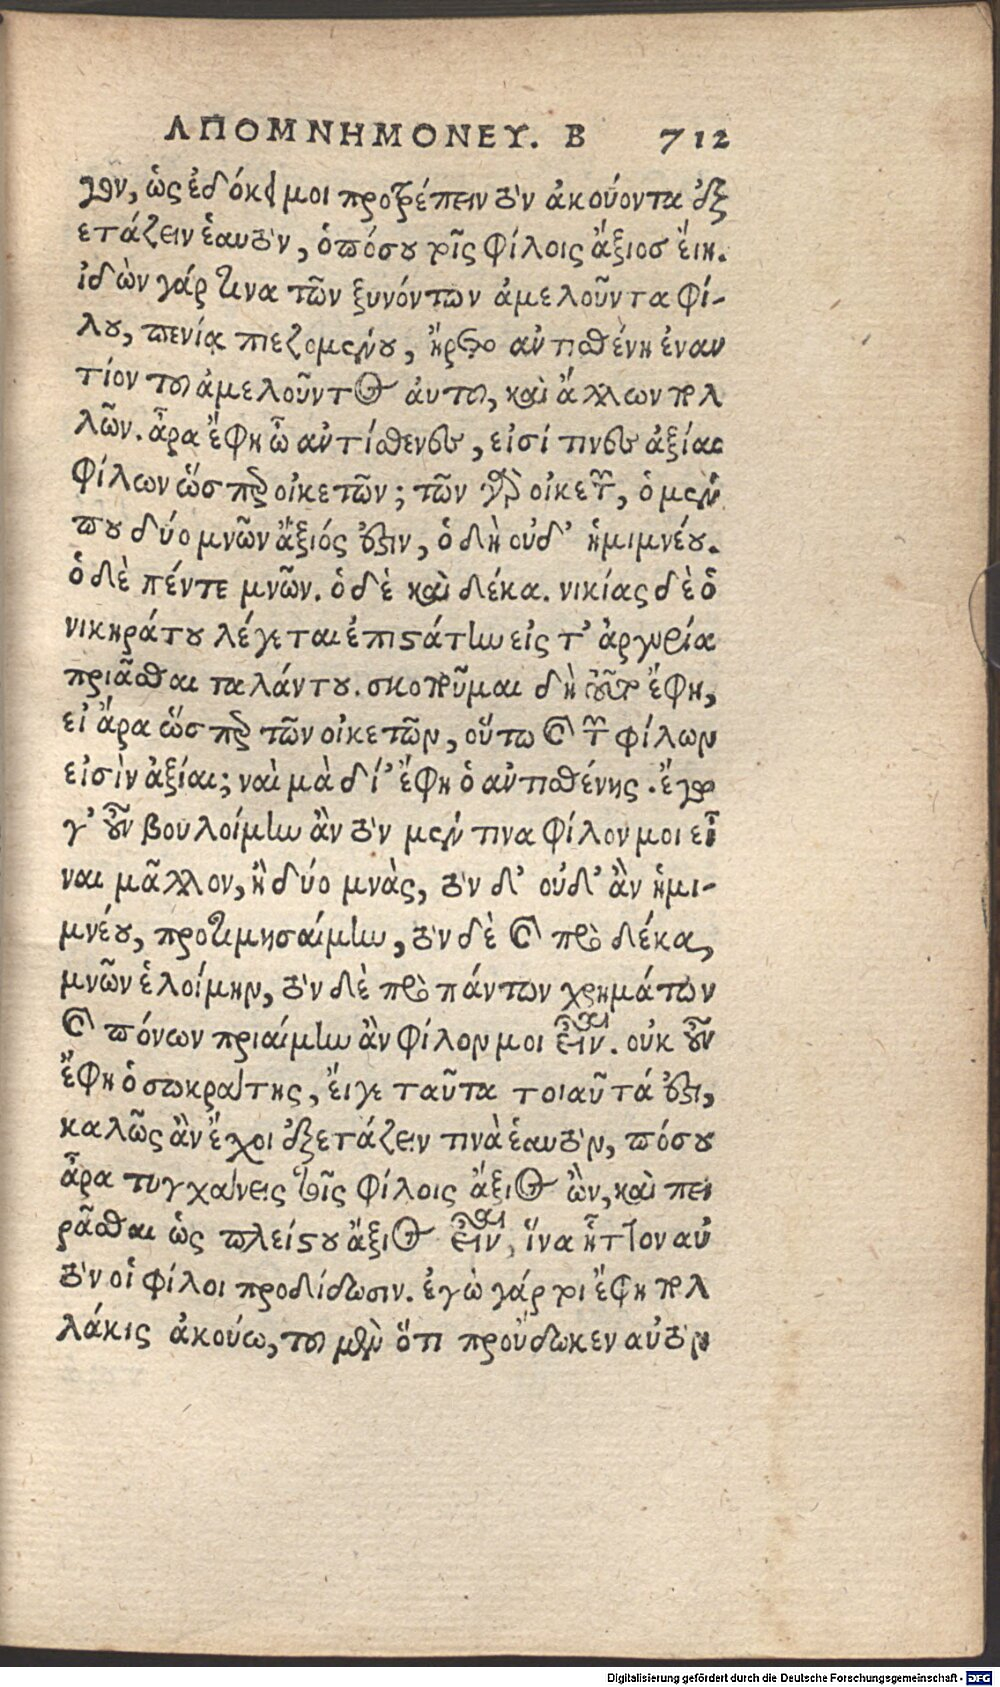 ΑΠΟΜΝΗΜΟΝΕΥ. Β 712
γον, ὡς ἐδόκει μοι προτρέπειν τὸν ἀκούοντα ἐξ
ετάζειν ἑαυτὸν, ὁπόσου τοῖς φίλοις ἄξιοσ εἴη.
ἰδὼν γάρ τινα τῶν ξυνόντων ἀμελοῦντα φί-
λου, πενίᾳ πιεζομένου, ἤρετο αὐτισθένη ἐναν
τίον τοῦ ἀμελοῦντος αὐτοῦ, καὶ ἄλλων πολ
λῶν. ἆρα ἔφη ὦ αὐτίσθενες, εἰσί τινες ἀξίαι
φίλων ὥσπερ οἰκετῶν; τῶν γὰρ οἰκετῶν, ὁ μέν
που δύο μνῶν ἄξιός ἐστιν, ὁ δὴ οὐδ' ἡμιμνέου.
ὁ δὲ πέντε μνῶν. ὁ δὲ καὶ δέκα. νικίας δὲ ὁ
νικηράτου λέγεται ἐπιστάτην εἰς τ' ἀργυρία
πριᾶσθαι ταλάντου. σκοποῦμαι δὴ τοῦτο ἔφη,
εἰ ἄρα ὥσπερ τῶν οἰκετῶν, οὕτω καὶ τῶν φίλων
εἰσὶν ἀξίαι; ναὶ μὰ δί' ἔφη ὁ αὐτισθένης. ἔγωγε
γ' οὖν βουλοίμην ἂν τὸν μέν τινα φίλον μοι εἶ
ναι μᾶλλον, ἢ δύο μνὰς, τὸν δ' οὐδ' ἂν ἡμι-
μνέου, προτιμησαίμην, τὸν δὲ καὶ πρὸ δέκα
μνῶν ἑλοίμην, τὸν δὲ πρὸ πάντων χρημάτων
καὶ πόνων πριαίμην ἂν φίλον μοι εἶναι. οὐκ οὖν
ἔφη ὁ σωκράτης, εἴγε ταῦτα τοιαῦτά ἐστι,
καλῶς ἂν ἔχοι ἐξετάζειν τινὰ ἑαυτὸν, πόσου
ἆρα τυγχάνεις τοῖς φίλοις ἄξιος ὢν, καὶ πει
ρᾶσθαι ὡς πλείστου ἄξιος εἶναι, ἵνα ἧττον αὐ
τὸν οἱ φίλοι προδίδωσιν. ἐγὼ γάρ τοι ἔφη πολ
λάκις ἀκούω, τοῦ μὲν ὅτι προὔδωκεν αὐτὸν
Digitalisierung gefördert durch die Deutsche Forschungsgemeinschaft - DFG